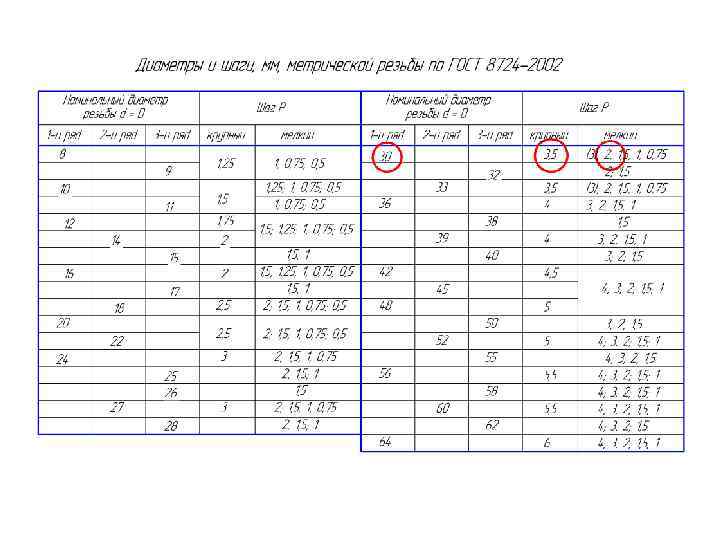 Диаметры и шаги, мм, метрической резьбы по ГОСТ 8724–2002
Номинальный диаметр резьбы d = D Шаг Р Номинальный диаметр резьбы d = D Шаг Р
1-й ряд 2-й ряд 3-й ряд крупный мелкий 1-й ряд 2-й ряд 3-й ряд крупный мелкий
8 1,25 1; 0,75; 0,5 30 3,5 (3); 2; 1,5; 1; 0,75
9 32 2; 1,5
10 1,5 1,25; 1; 0,75; 0,5 33 3,5 (3); 2; 1,5; 1; 0,75
11 1; 0,75; 0,5 36 4 3; 2; 1,5; 1
12 1,75 1,5; 1,25; 1; 0,75; 0,5 38 1,5
14 2 39 4 3; 2; 1,5; 1
15 1,5; 1 40 3; 2; 1,5
16 2 1,5; 1,25; 1; 0,75; 0,5 42 4,5 4; 3; 2; 1,5; 1
17 1,5; 1 45
18 2,5 2; 1,5; 1; 0,75; 0,5 48 5
20 2,5 2; 1,5; 1; 0,75; 0,5 50 3; 2; 1,5
22 52 5 4; 3; 2; 1,5; 1
24 3 2; 1,5; 1; 0,75 55 4; 3; 2; 1,5
25 2; 1,5; 1 56 5,5 4; 3; 2; 1,5; 1
26 1,5 58 4; 3; 2; 1,5; 1
27 3 2; 1,5; 1; 0,75 60 5,5 4; 3; 2; 1,5; 1
28 2; 1,5; 1 62 4; 3; 2; 1,5
64 6 4; 3; 2; 1,5; 1